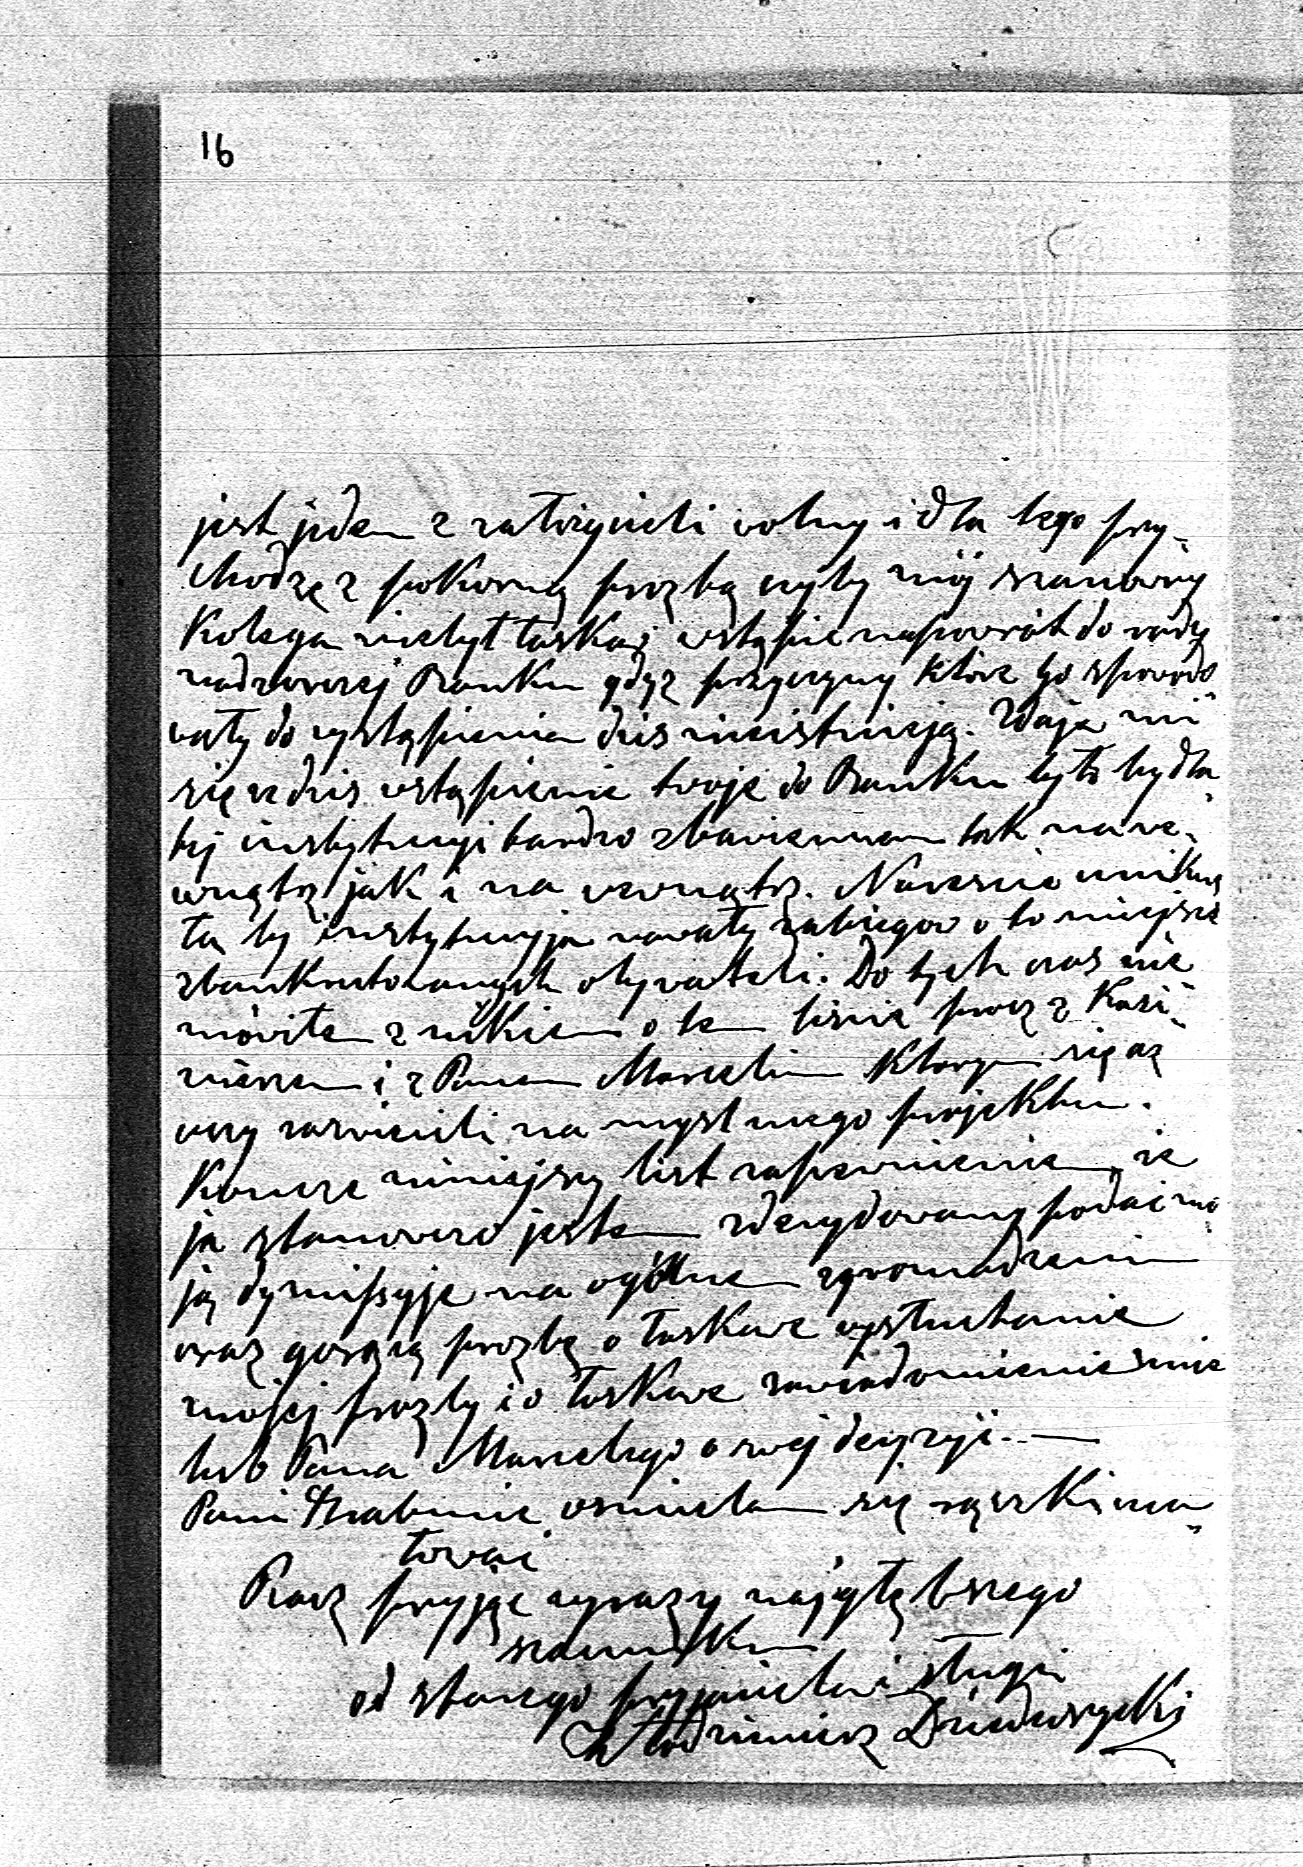 16
jest jeden z założycieli wolny i dla tego przy-
chodzę z pokorną prozbą czyby mój szanowny
Kolega niebył łaskaw wstąpić napowrót do rady
nadzorczej Banku gdyż przyczyny które go spowodo
wały do wystąpienia dziś nieistnieją. Zdaje mi
się że dziś wstąpienie twoje do Banku było by dla
tej instytucyi bardzo zbawiennem tak na we-
wnątrz jak i na zewnątrz. Nareście unikne
ła by instytucyja nawały zabiegow o to miejsce
zbankrutowanych obywateli. Do tych czas nie
mówiłem z nikiem o tem liscie procz z Kazi-
mierzem i z Panem Marcelim Ktorym się aż
oczy zaswieciły na mysl mego projektu.
Koncze niniejszy list zapewnieniem że
ja stanowczo jestem zdecydowany podać mo
ją dymissyje na ogólnem zgromadzeniu
oraz gorącą prozbę o łaskawe wysłuchanie
mojej prozby i o łaskawe zawiadomienie mnie
lub Pana Marcelego o swej decyzyi. —
Pani Hrabinie osmielam się rączki uca-
łować
Racz przyjąć wyrazy najgłębszego
szacunku
od starego przyjaciela i sługi
Włodzimierz Dzieduszycki